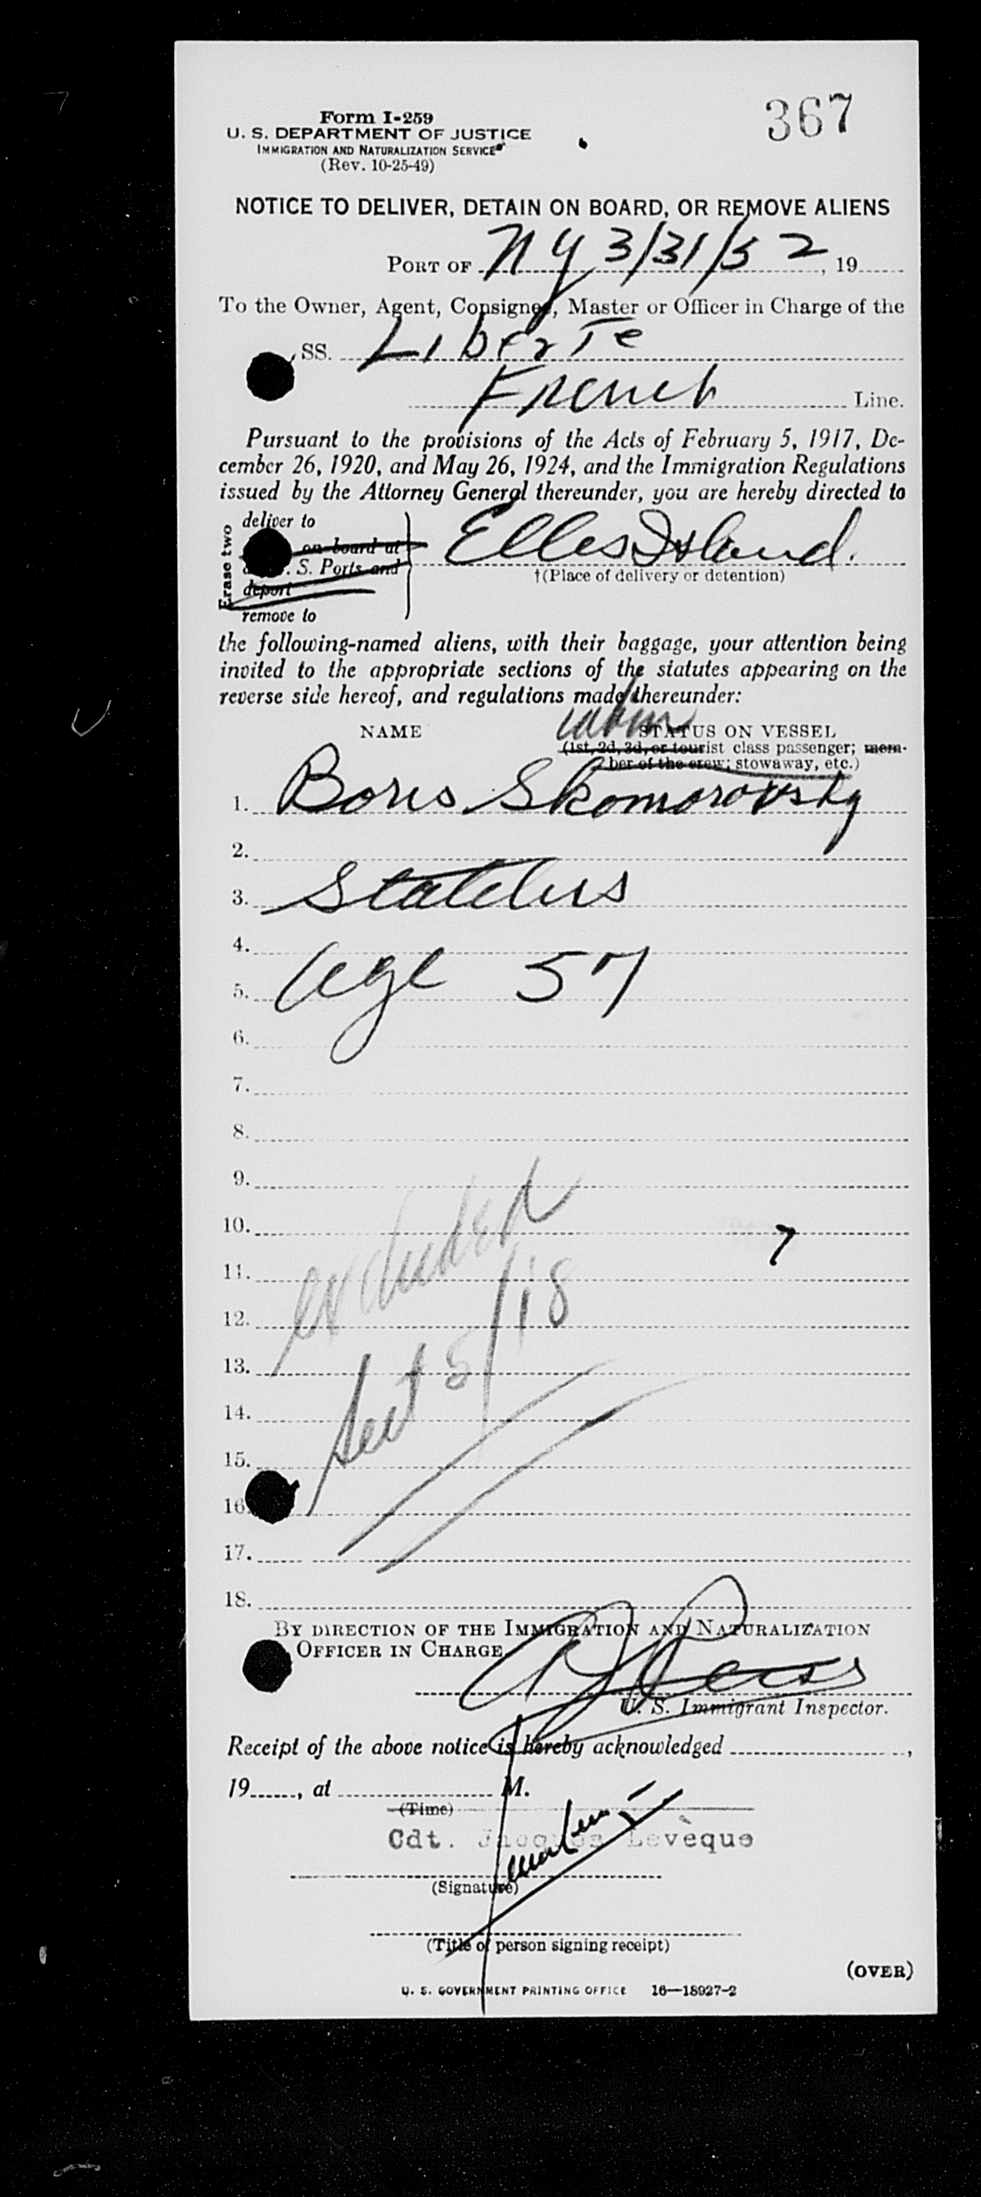 367
Form I-259
U. S. DEPARTMENT OF JUSTICE
IMMIGRATION AND NATURALIZATION SERVICE
(Rev. 10-25-49)
NOTICE TO DELIVER, DETAIN ON BOARD, OR REMOVE ALIENS
PORT OF NY 3/31/52, 19
To the Owner, Agent, Consignee, Master or Officer in Charge of the
SS. Liberte
French Line.
Pursuant to the provisions of the Acts of February 5, 1917, De-
cember 26, 1920, and May 26, 1924, and the Immigration Regulations
issued by the Attorney General thereunder, you are hereby directed to
Erase two
deliver to
on board at
S. Ports and
deport
remove to
Elles Island.
†(Place of delivery or detention)
the following-named aliens, with their baggage, your attention being
invited to the appropriate sections of the statutes appearing on the
reverse side hereof, and regulations made thereunder:
cabin
NAME STATUS ON VESSEL
(1st, 2d, 3d, or tourist class passenger; mem-
ber of the crew; stowaway, etc.)
1. Boris Skomorovsky
2.
3. Stateless
4.
5. Age 57
6.
7.
8.
9.
10. 7
excluded
11.
12.
13.
Sect 5/18
14.
15.
16.
17.
18.
BY DIRECTION OF THE IMMIGRATION AND NATURALIZATION
OFFICER IN CHARGE
U. S. Immigrant Inspector.
Receipt of the above notice is hereby acknowledged ,
19, at M.
(Time)
Cdt. Jacques Levèque
(Signature)
(Title of person signing receipt)
(OVER)
U. S. GOVERNMENT PRINTING OFFICE 16—18927-2